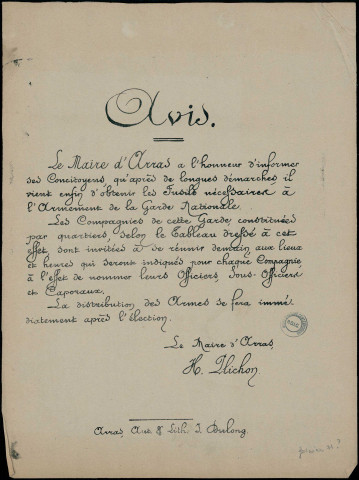 Avis.
Le Maire d'Arras a l'honneur d'informer
ses Concitoyens qu'après de longues démarches il
vient enfin d'obtenir les Fusils nécessaires à
l'Armement de la Garde Nationale.
Les Compagnies de cette Garde, constituées
par quartiers, selon le Tableau dressé à cet
effet sont invitées à se réunir demain aux lieux
et heures qui seront indiqués pour chaque Compagnie
à l'effet de nommer leurs Officiers, Sous-Officiers
et Caporaux.
La distribution des Armes se fera immé-
diatement après l'élection.
Le Maire d'Arras,
H. Plichon
Arras, Aut. & Lith. J. Brelong.